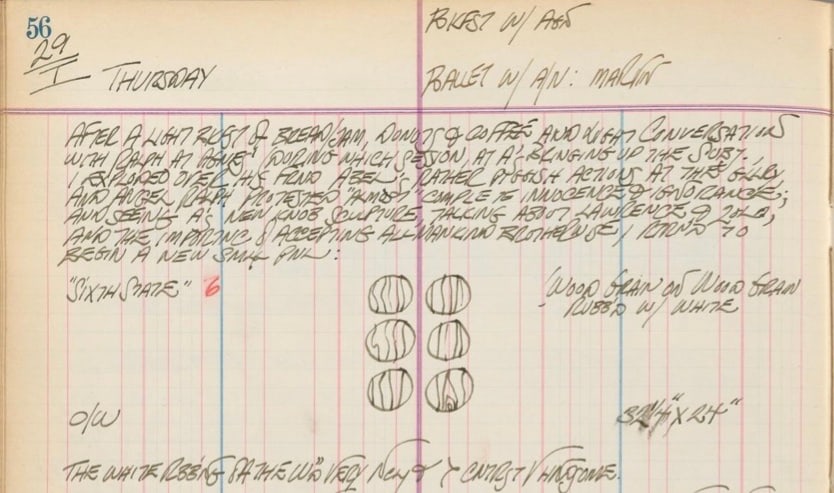 56
29
I THURSDAY
BKFST W/ A&R
BALLET W/ A/N: MARTIN
AFTER A LIGHT BKFST OF BREAD/JAM, DONUTS & COFFEE AND LIGHT CONVERSATION
WITH RALPH AT HOME, DURING WHICH SESSION, AT A'S BRINGING UP THE SUBJ.,
I EXPLODED OVER HIS FRND ABEL'S RATHER PIGGISH ACTIONS AT THE GLLRY
AND ANGEL RALPH PROTESTED "ALMOST" COMPLETE INNOCENCE & IGNORANCE;
AND SEEING A'S NEW KNOB SCULPTURE, TALKING ABOUT LAWRENCE & ZOLA,
AND THE IMPORTNC OF ACCEPTING ALL MANKIND I RTRND TO
BEGIN A NEW SMLL PNL:
"SIXTH STATE" 6
WOOD GRAIN ON WOOD GRAIN
RUBB'D W/ WHITE
O/W
32 1/4" X 24"
THE WHITE RBBING OF THE WD VERY